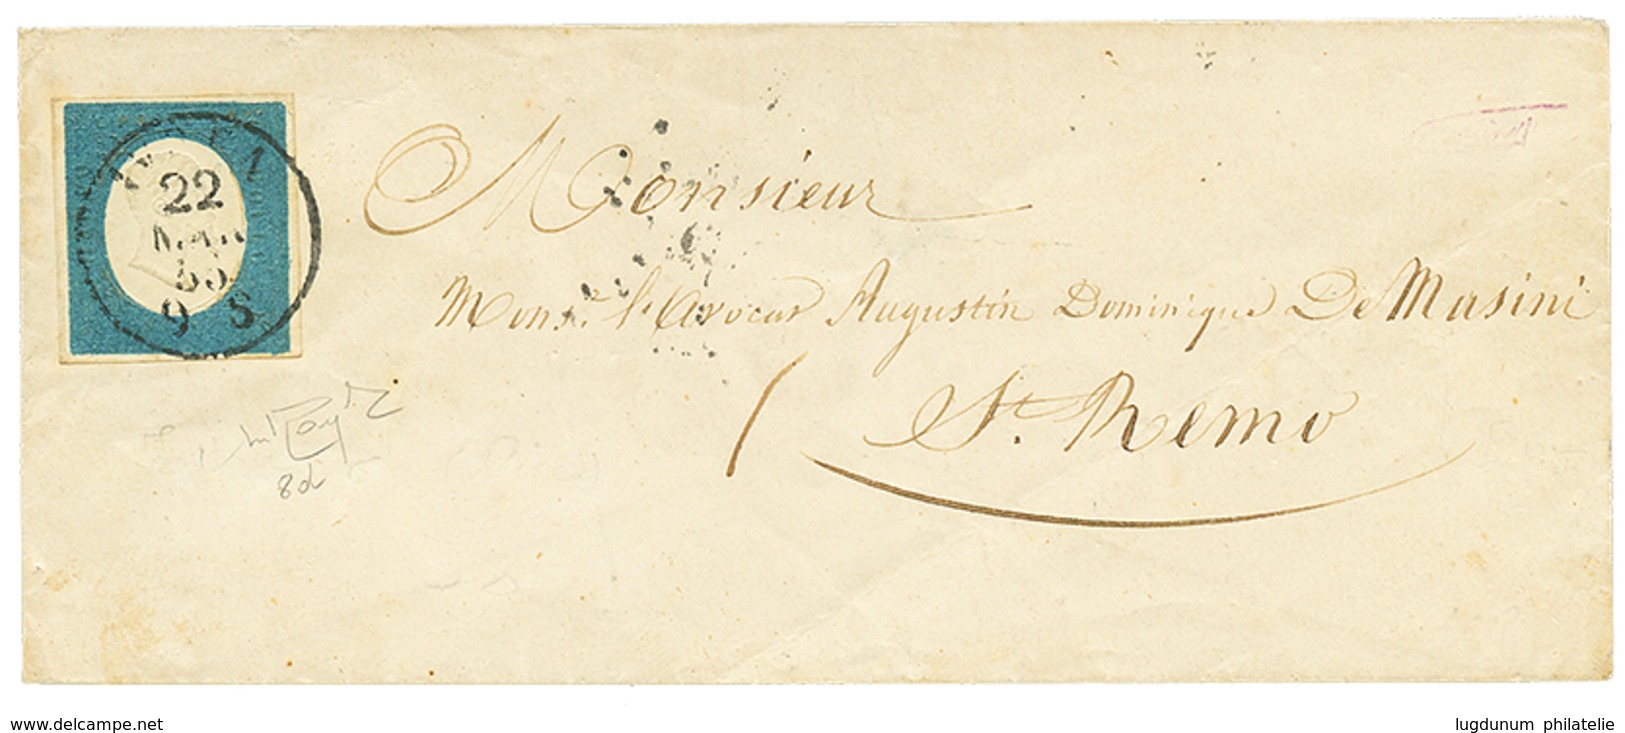 22
55
9 S
Monsieur
Mons.r l'Avocat Augustin Dominique De Masini
St. Remo
8d
www.delcampe.net
lugdunum philatelie